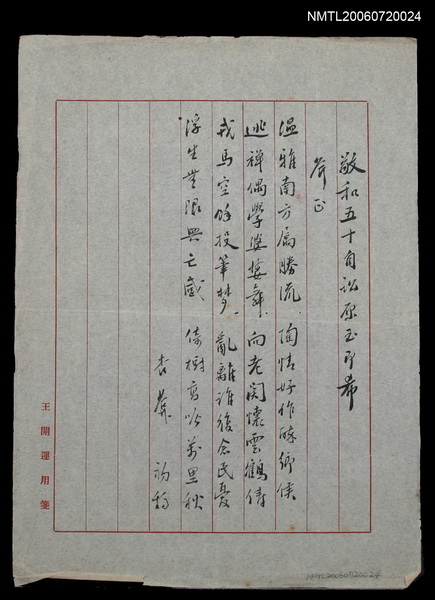 NMTL20060720024
敬和五十自訟原玉即希
斧正
溫雅南方属勝流 陶情好作醉鄉侯
逃禪偶學婆娑舞 向老関懷雲鶴儔
戎馬空餘投筆夢 亂離誰復念民憂
浮生無限興亡感 倚樹高吟万里秋
初稿
王開運用箋
NMTL20060720024